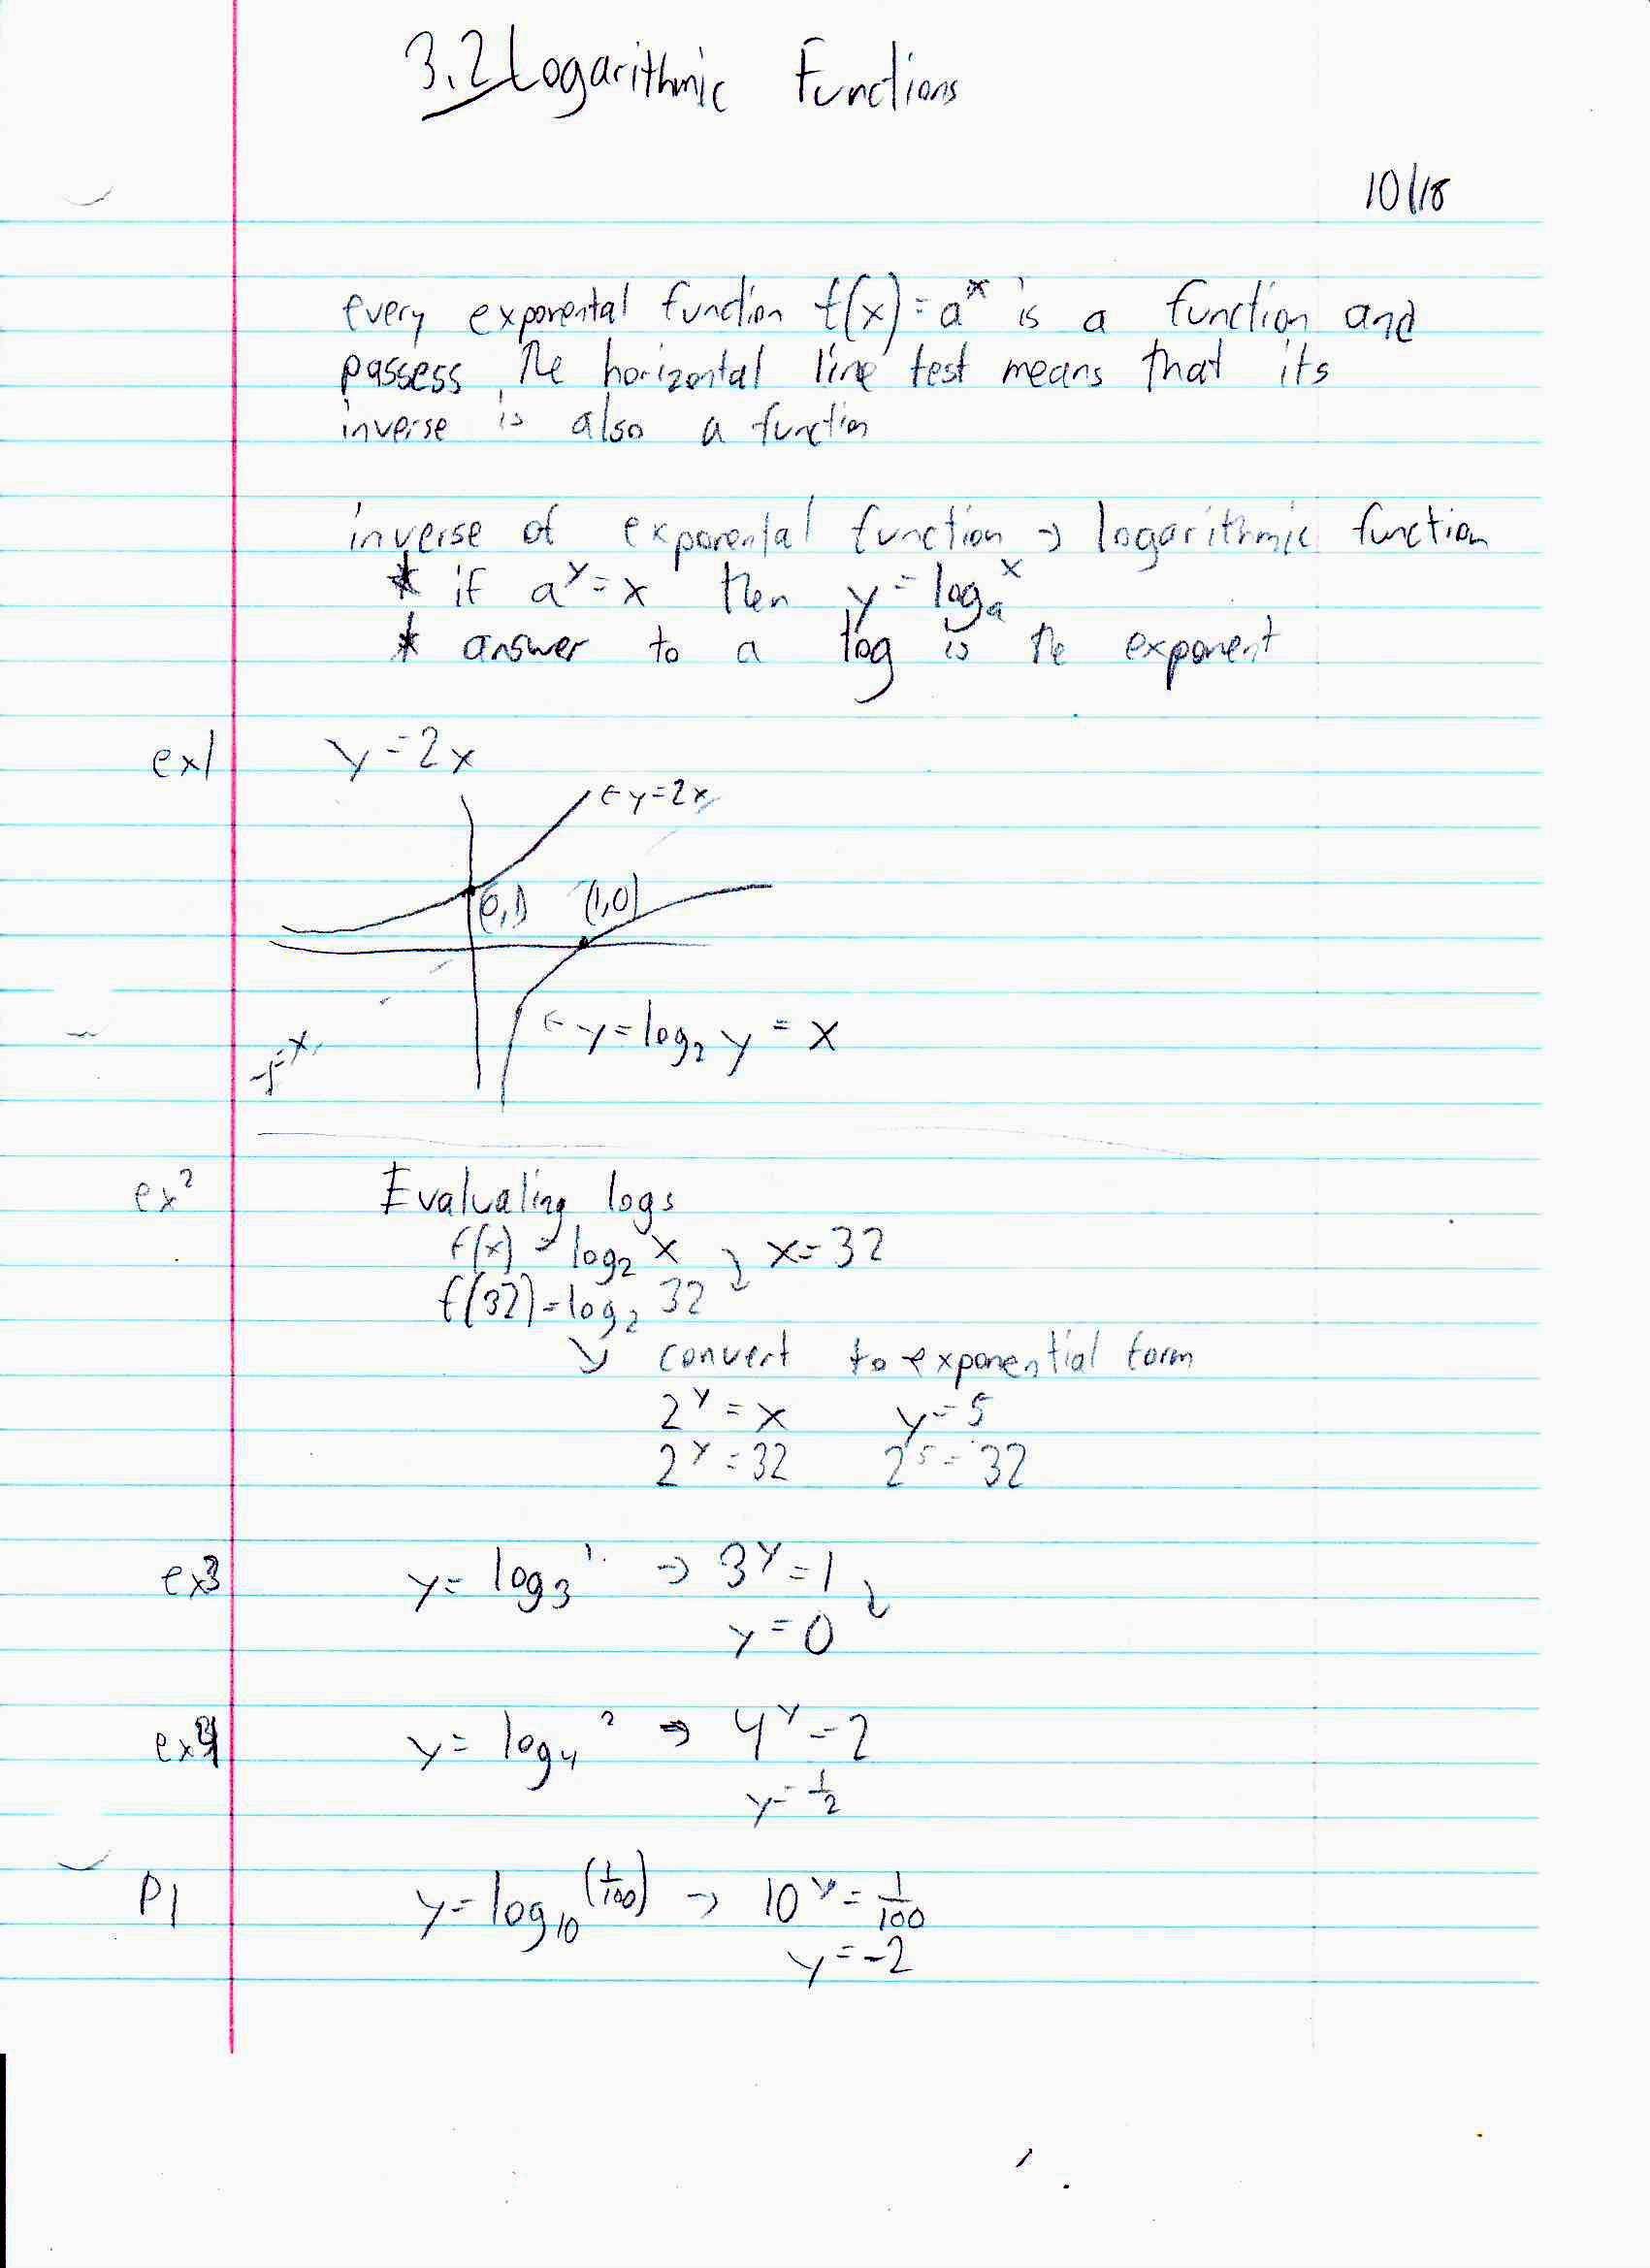 3.2 Logarithmic Functions
10/18
every exponental function f(x) = a^x is a function and
passess the horizontal line test means that its
inverse is also a function
inverse of exponental function → logarithmic function
* if a^y = x then y = log_a x
* answer to a log is the exponent
ex1 y = 2x
← y = 2x
(0,1) (1,0)
← y = log_2 y = x
y = x
ex2 Evaluating logs
f(x) = log_2 x x = 32
f(32) = log_2 32
↘ convert to exponential form
2^y = x y = 5
2^y = 32 2^5 = 32
ex3 y = log_3 1 → 3^y = 1
y = 0
ex4 y = log_4 2 → 4^y = 2
y = 1/2
P1 y = log_10 (1/100) → 10^y = 1/100
y = -2